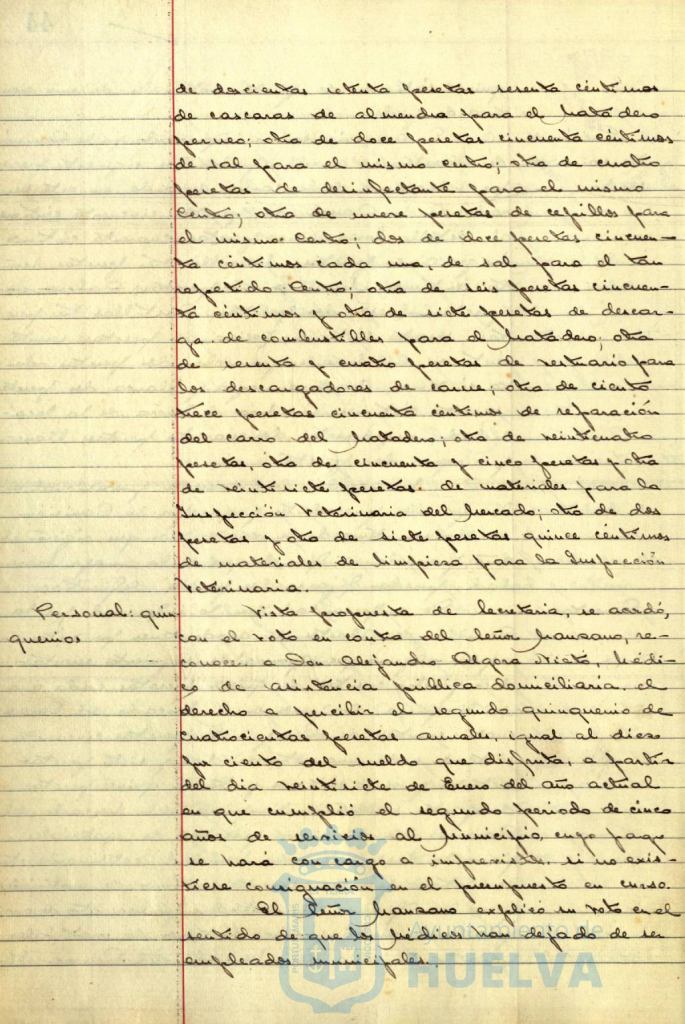 de doscientas setenta pesetas sesenta céntimos
de cascaras de almendra para el Matadero
porsuno; otra de doce pesetas cincuenta céntimos
de sal para el mismo centro; otra de cuatro
pesetas de desinfectante para el mismo
Centro; otra de nueve pesetas de cepillos para
el mismo Centro; dos de doce pesetas cincuen-
ta céntimos cada una, de sal para el tan
repetido Centro; otra de seis pesetas cincuen-
ta céntimos y otra de siete pesetas de descar-
ga de combustibles para el Matadero; otra
de sesenta y cuatro pesetas de vestuario para
los descargadores de carne; otra de ciento
trece pesetas cincuenta céntimos de reparación
del carro del Matadero; otra de veinticuatro
pesetas, otra de cincuenta y cinco pesetas y otra
de veintisiete pesetas de materiales para la
Inspección Veterinaria del Mercado; otra de dos
pesetas y otra de siete pesetas quince céntimos
de materiales de limpieza para la Inspección
Veterinaria.
Personal: quin-
quenios
Vista propuesta de Secretaria, se acordó,
con el voto en contra del Señor Manzano, re-
conocer a Don Alejandro Algora Nieto, Médi-
co de asistencia pública domiciliaria, el
derecho a percibir el segundo quinquenio de
cuatrocientas pesetas anuales, igual al diez
por ciento del sueldo que disfruta, a partir
del dia veintisiete de Enero del año actual
en que cumplió el segundo periodo de cinco
años de servicios al Municipio, cuyo pago
se hará con cargo a imprevistos, si no exis-
tiese consignación en el presupuesto en curso.
El Señor Manzano explicó su voto en el
sentido de que los Médicos han dejado de ser
empleados municipales.
Ayuntamiento de
HUELVA